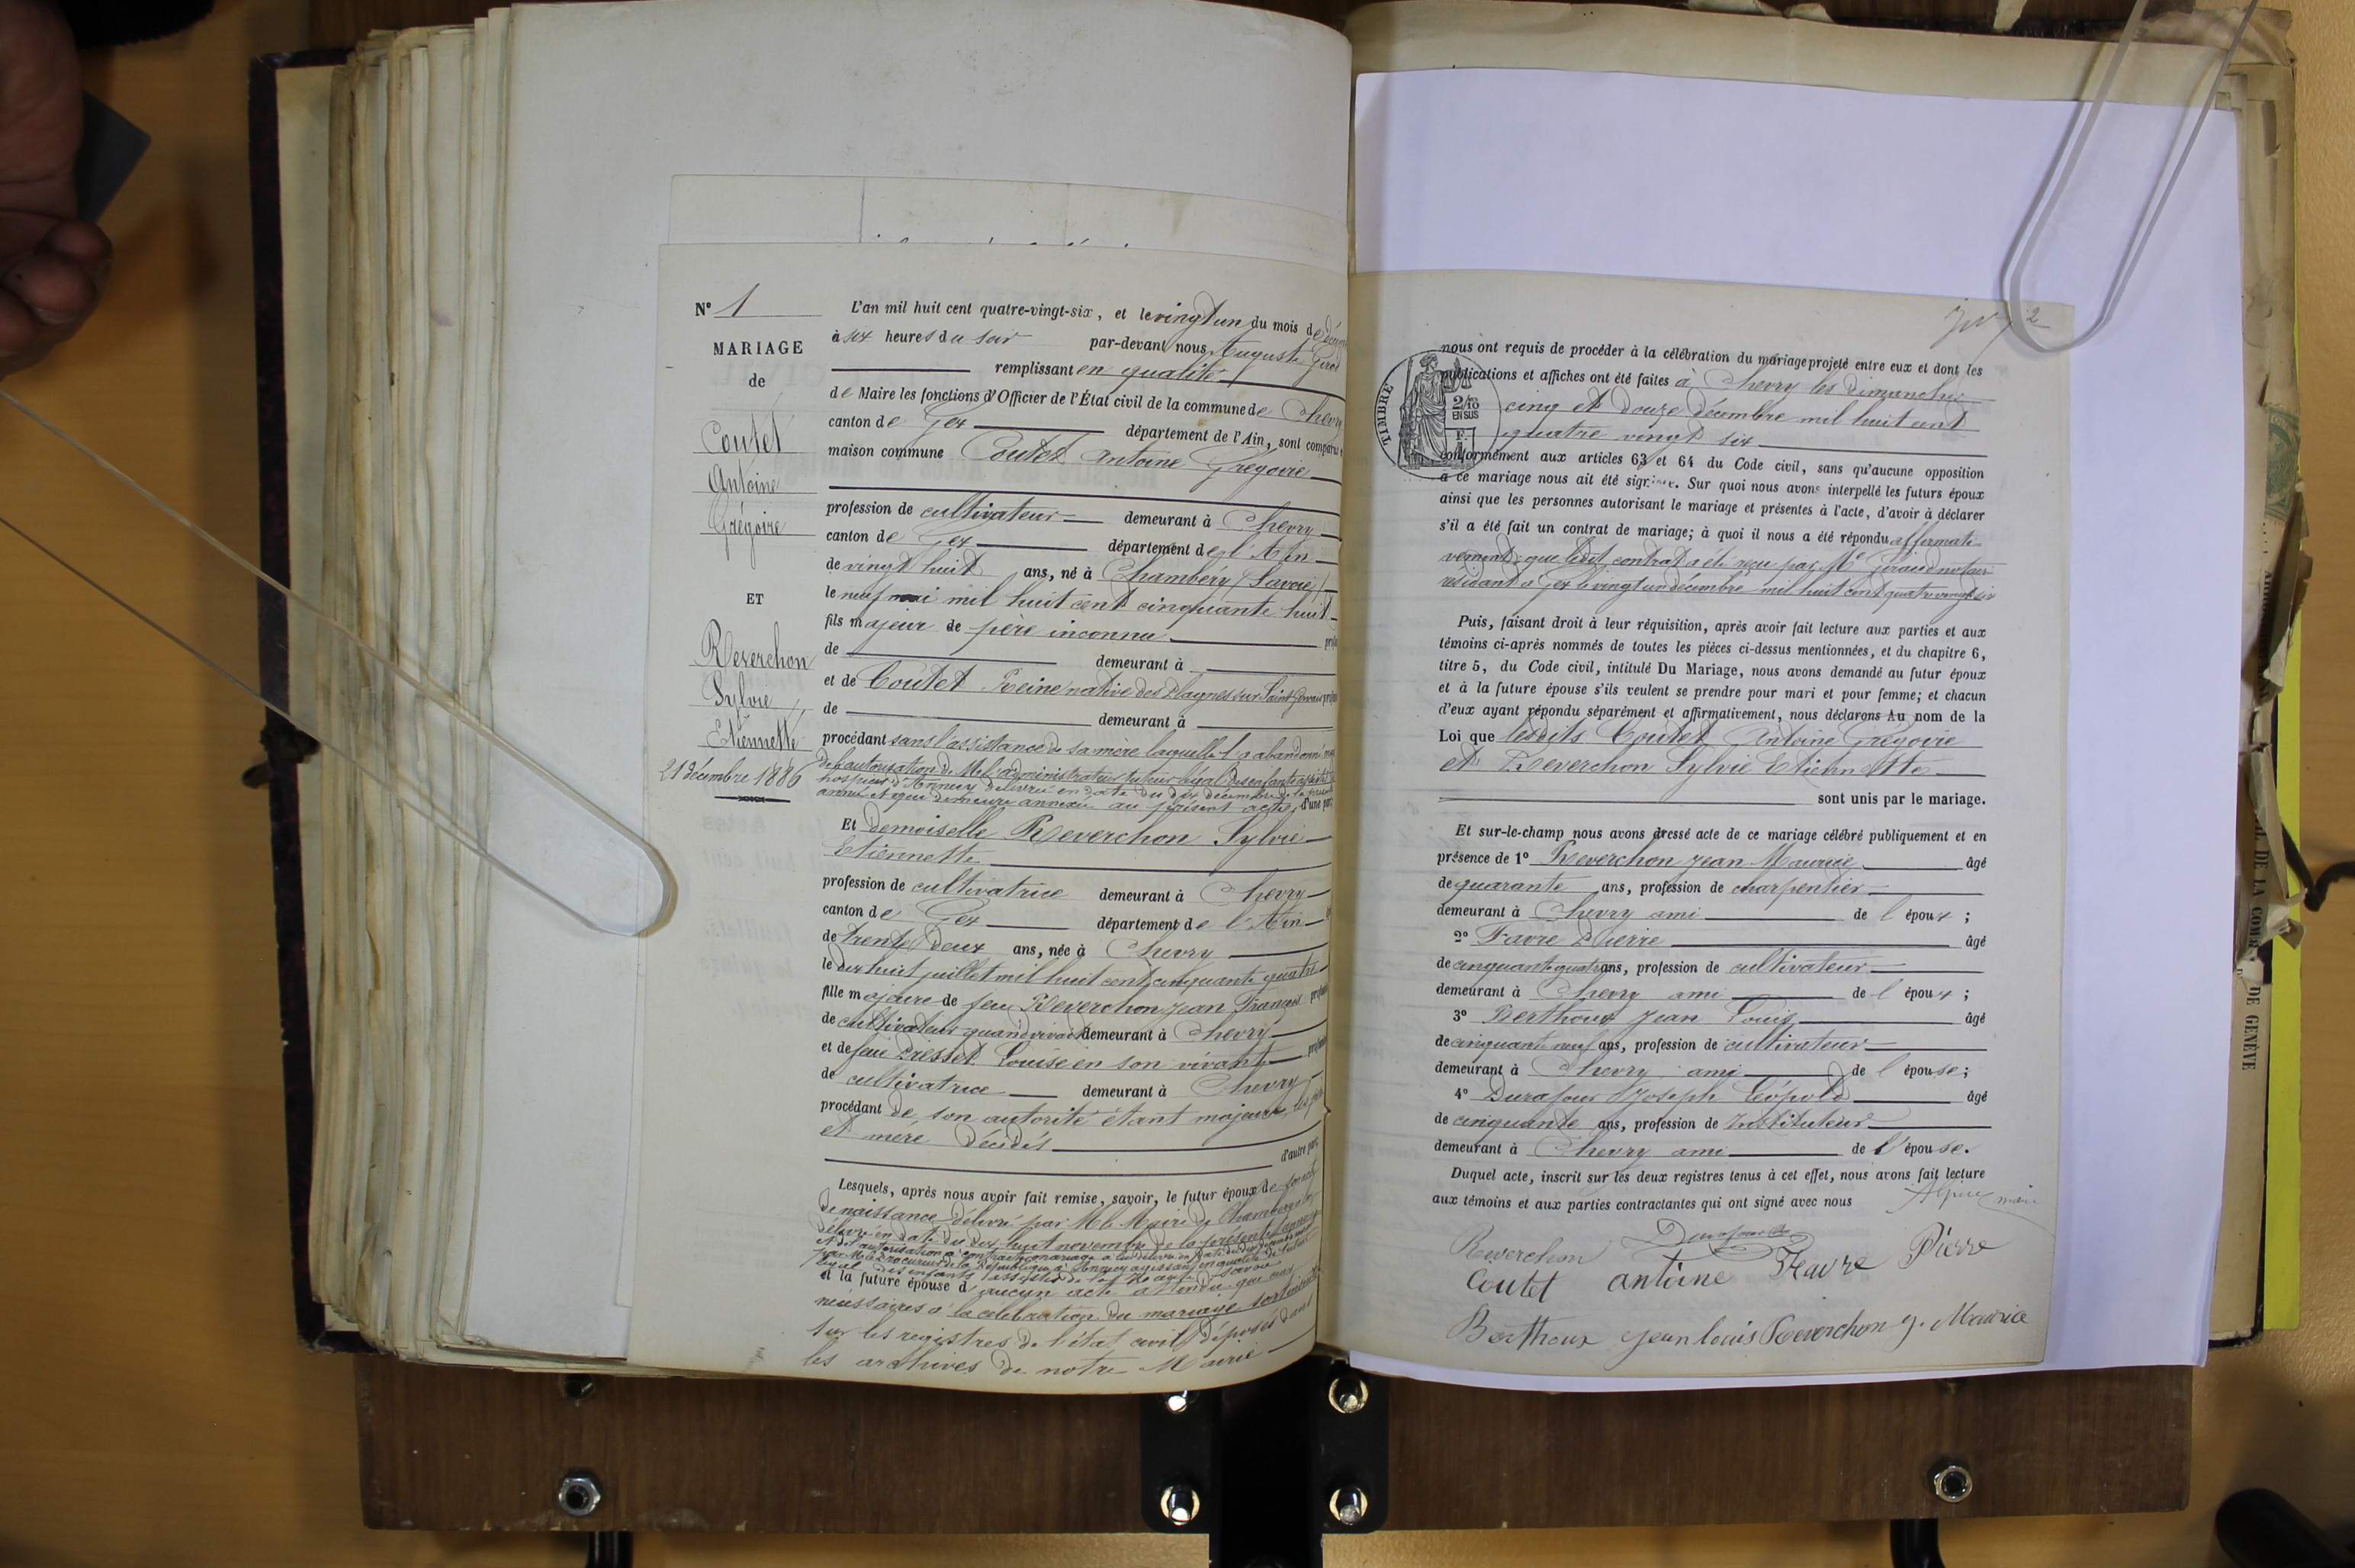 N° 1
MARIAGE
de
Coutet
Antoine
Grégoire
ET
Reverchon
Sylvie
Etiennette
21 décembre 1886
L'an mil huit cent quatre-vingt-six, et le vingt un du mois de
à six heures du soir par-devant nous Auguste
remplissant en qualité
de Maire les fonctions d'Officier de l'État civil de la commune de Chevry
canton de Gex département de l'Ain, sont comparus
maison commune Coutet Antoine Grégoire
profession de cultivateur demeurant à Chevry
canton de Gex département de l'Ain
de vingt huit ans, né à Chambéry (Savoie)
le neuf mai mil huit cent cinquante huit
fils majeur de père inconnu
de demeurant à
et de Coutet Reine native des Plagnes sur Saint Gervais
de demeurant à
procédant sans l'assistance de sa mère laquelle l'a abandonné
de l'autorisation de Mr l'administrateur tuteur légal des enfants assistés
hospices d'Annecy délivrée en date du dix décembre de la présente
année et qui demeure annexée au présent acte, d'une part,
Et demoiselle Reverchon Sylvie
Etiennette
profession de cultivatrice demeurant à Chevry
canton de Gex département de l'Ain
de trente deux ans, née à Chevry
le dix huit juillet mil huit cent cinquante quatre
fille majeure de feu Reverchon Jean François
de cultivateur quand vivait demeurant à Chevry
et de feue Louise en son vivant
de cultivatrice demeurant à Chevry
procédant de son autorité étant majeure, les père
et mère décédés
d'autre part,
Lesquels, après nous avoir fait remise, savoir, le futur époux de
de naissance délivré par Mr le Maire de Chambéry
délivré en date du dix huit novembre de la présente année
et de l'autorisation à contracter mariage à lui délivrée en date du dix
par Mr le Procureur de la République à Annecy agissant en qualité de tuteur
légal des enfants assistés de la Haute Savoie
et la future épouse d'aucun acte attendu que ceux
nécessaires à la célébration du mariage sont
sur les registres de l'état civil déposés dans
les archives de notre Mairie
2
TIMBRE
2/10
EN SUS
nous ont requis de procéder à la célébration du mariage projeté entre eux et dont les
publications et affiches ont été faites à Chevry les dimanches
cinq et douze décembre mil huit cent
quatre vingt six
conformément aux articles 63 et 64 du Code civil, sans qu'aucune opposition
à ce mariage nous ait été signifiée. Sur quoi nous avons interpellé les futurs époux
ainsi que les personnes autorisant le mariage et présentes à l'acte, d'avoir à déclarer
s'il a été fait un contrat de mariage; à quoi il nous a été répondu affirmati-
vement que ledit contrat a été reçu par Me Giraud notaire
résidant à Gex le vingt un décembre mil huit cent quatre vingt six
Puis, faisant droit à leur réquisition, après avoir fait lecture aux parties et aux
témoins ci-après nommés de toutes les pièces ci-dessus mentionnées, et du chapitre 6,
titre 5, du Code civil, intitulé Du Mariage, nous avons demandé au futur époux
et à la future épouse s'ils veulent se prendre pour mari et pour femme; et chacun
d'eux ayant répondu séparément et affirmativement, nous déclarons Au nom de la
Loi que lesdits Coutet Antoine Grégoire
et Reverchon Sylvie Etiennette
sont unis par le mariage.
Et sur-le-champ nous avons dressé acte de ce mariage célébré publiquement et en
présence de 1° Reverchon Jean Maurice âgé
de quarante ans, profession de charpentier
demeurant à Chevry ami de l'époux;
2° Favre Pierre âgé
de cinquante quatre ans, profession de cultivateur
demeurant à Chevry ami de l'époux;
3° Berthoux Jean Louis âgé
de cinquante neuf ans, profession de cultivateur
demeurant à Chevry ami de l'épouse;
4° Durafour Joseph Léopold âgé
de cinquante ans, profession de Instituteur
demeurant à Chevry ami de l'épouse.
Duquel acte, inscrit sur les deux registres tenus à cet effet, nous avons fait lecture
aux témoins et aux parties contractantes qui ont signé avec nous
Reverchon Durafour
Coutet antoine Favre Pierre
Berthoux jean louis Reverchon j. Maurice
DE GENÈVE